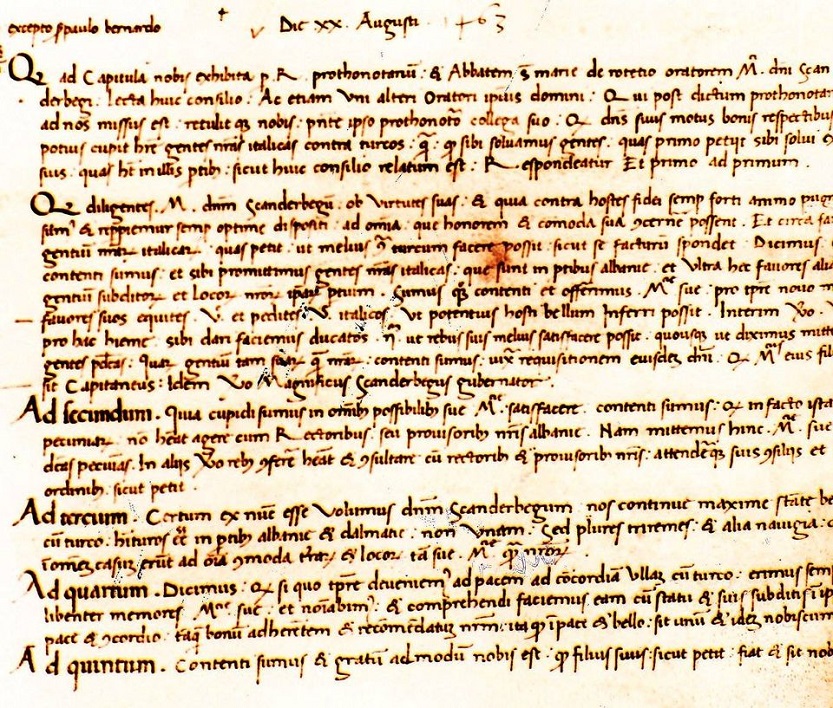 excepto ser paulo bernardo
Die XX. Augusti 1463
Q ad Capitula nobis exhibita p R. prothonotariū: & Abbatem s̄ marie de rotetio oratorem M. dni Scan
derbegi. lecta huic consilio: Ac etiam Vni alteri Oratori ipius domini: Qui post dictum prothonotar
ad nos missus est: retulit qz nobis: pn̄te ipso prothonoto collega suo: Q dns suus motus bonis respectibus
potius cupit hr̄e gentes nr̄as italicas contra turcos: q̄: q sibi soluamus gentes. quas primo petijt sibi solui
suis. quas ht in illis ptib: sicut huic consilio relatum est: Respondeatur Et primo ad primum.
Q diligentes. M. dnm Scanderbegū. ob virtutes suas: & quia contra hostes fidei semp forti animo pug
sum & reppiemur semp optime dispositi: ad omia. que honorem & comoda sua cernē possent. Et circa fa
gentiū nrar italicar. quas petit. ut melius turcum facere possit: sicut se facturū spondet. Dicimus.
contenti sumus: et sibi promittimus gentes nr̄as italicas: que sunt in ptibus albanie. et Vltra hec fauores alia
gentiū subditor et locor nror ptium. Sumus contenti et offerimus. M. sue. pro tpre nouo
fauores suos equites. V. et pedites V. italicos. Vt potentius hosti bellum Inferri possit. Interim Vo.
pro hac hieme. sibi dari faciemus ducatos. ut rebus suis melius satisfacere possit. quousqz ut diximus mitt
gentes pdcas: gentiū tam suar q̄ nrar: contenti sumus: iuxᵃ requisitionem eiusdez dni. Q M. eius fil
sit Capitaneus: Idem Vo Magnificus Scanderbegus gubernator.
Ad secundum. Quia cupidi sumus in omib possibilib sue M. satisfacere. contenti sumus: Q in facto ista
pecuniar. nō heat agere cum Rectoribus: seu prouisorib nr̄is albanie. Nam mittemus hinc. M. sue
dcas pecunias. In alijs Vo reb ferre heat & sultare cū rectorib & prouisorib nr̄is: attende qz suis siliis et
ordinib: sicut petit.
Ad tercium. Certum ex nūc esse Volumus dnm Scanderbegum. nos continue maxime state be
cū turco: hituros eē in ptib albanie & dalmatie. non Vnam. Sed plures triremes: & alia nauigia:
casus erūt ad oīa moda & locor tā sue. M. q̄ nror.
Ad quartum. Dicimus: Q si quo tpre deueniem ad pacem ad cōcordiā Vllaz cū turco: erimus semp
libenter memores M. sue: et noīabim: & comprehendi faciemus eam cū statu & suis subditis
pace & cordio: bonū adherētem & recomēdatuz nrm: ita q ī pace & bello: sit vnū & idez nobiscum
Ad quintum. Contenti sumus & gratū admodū nobis est: q filius suus: sicut petit: fiat & sit nob